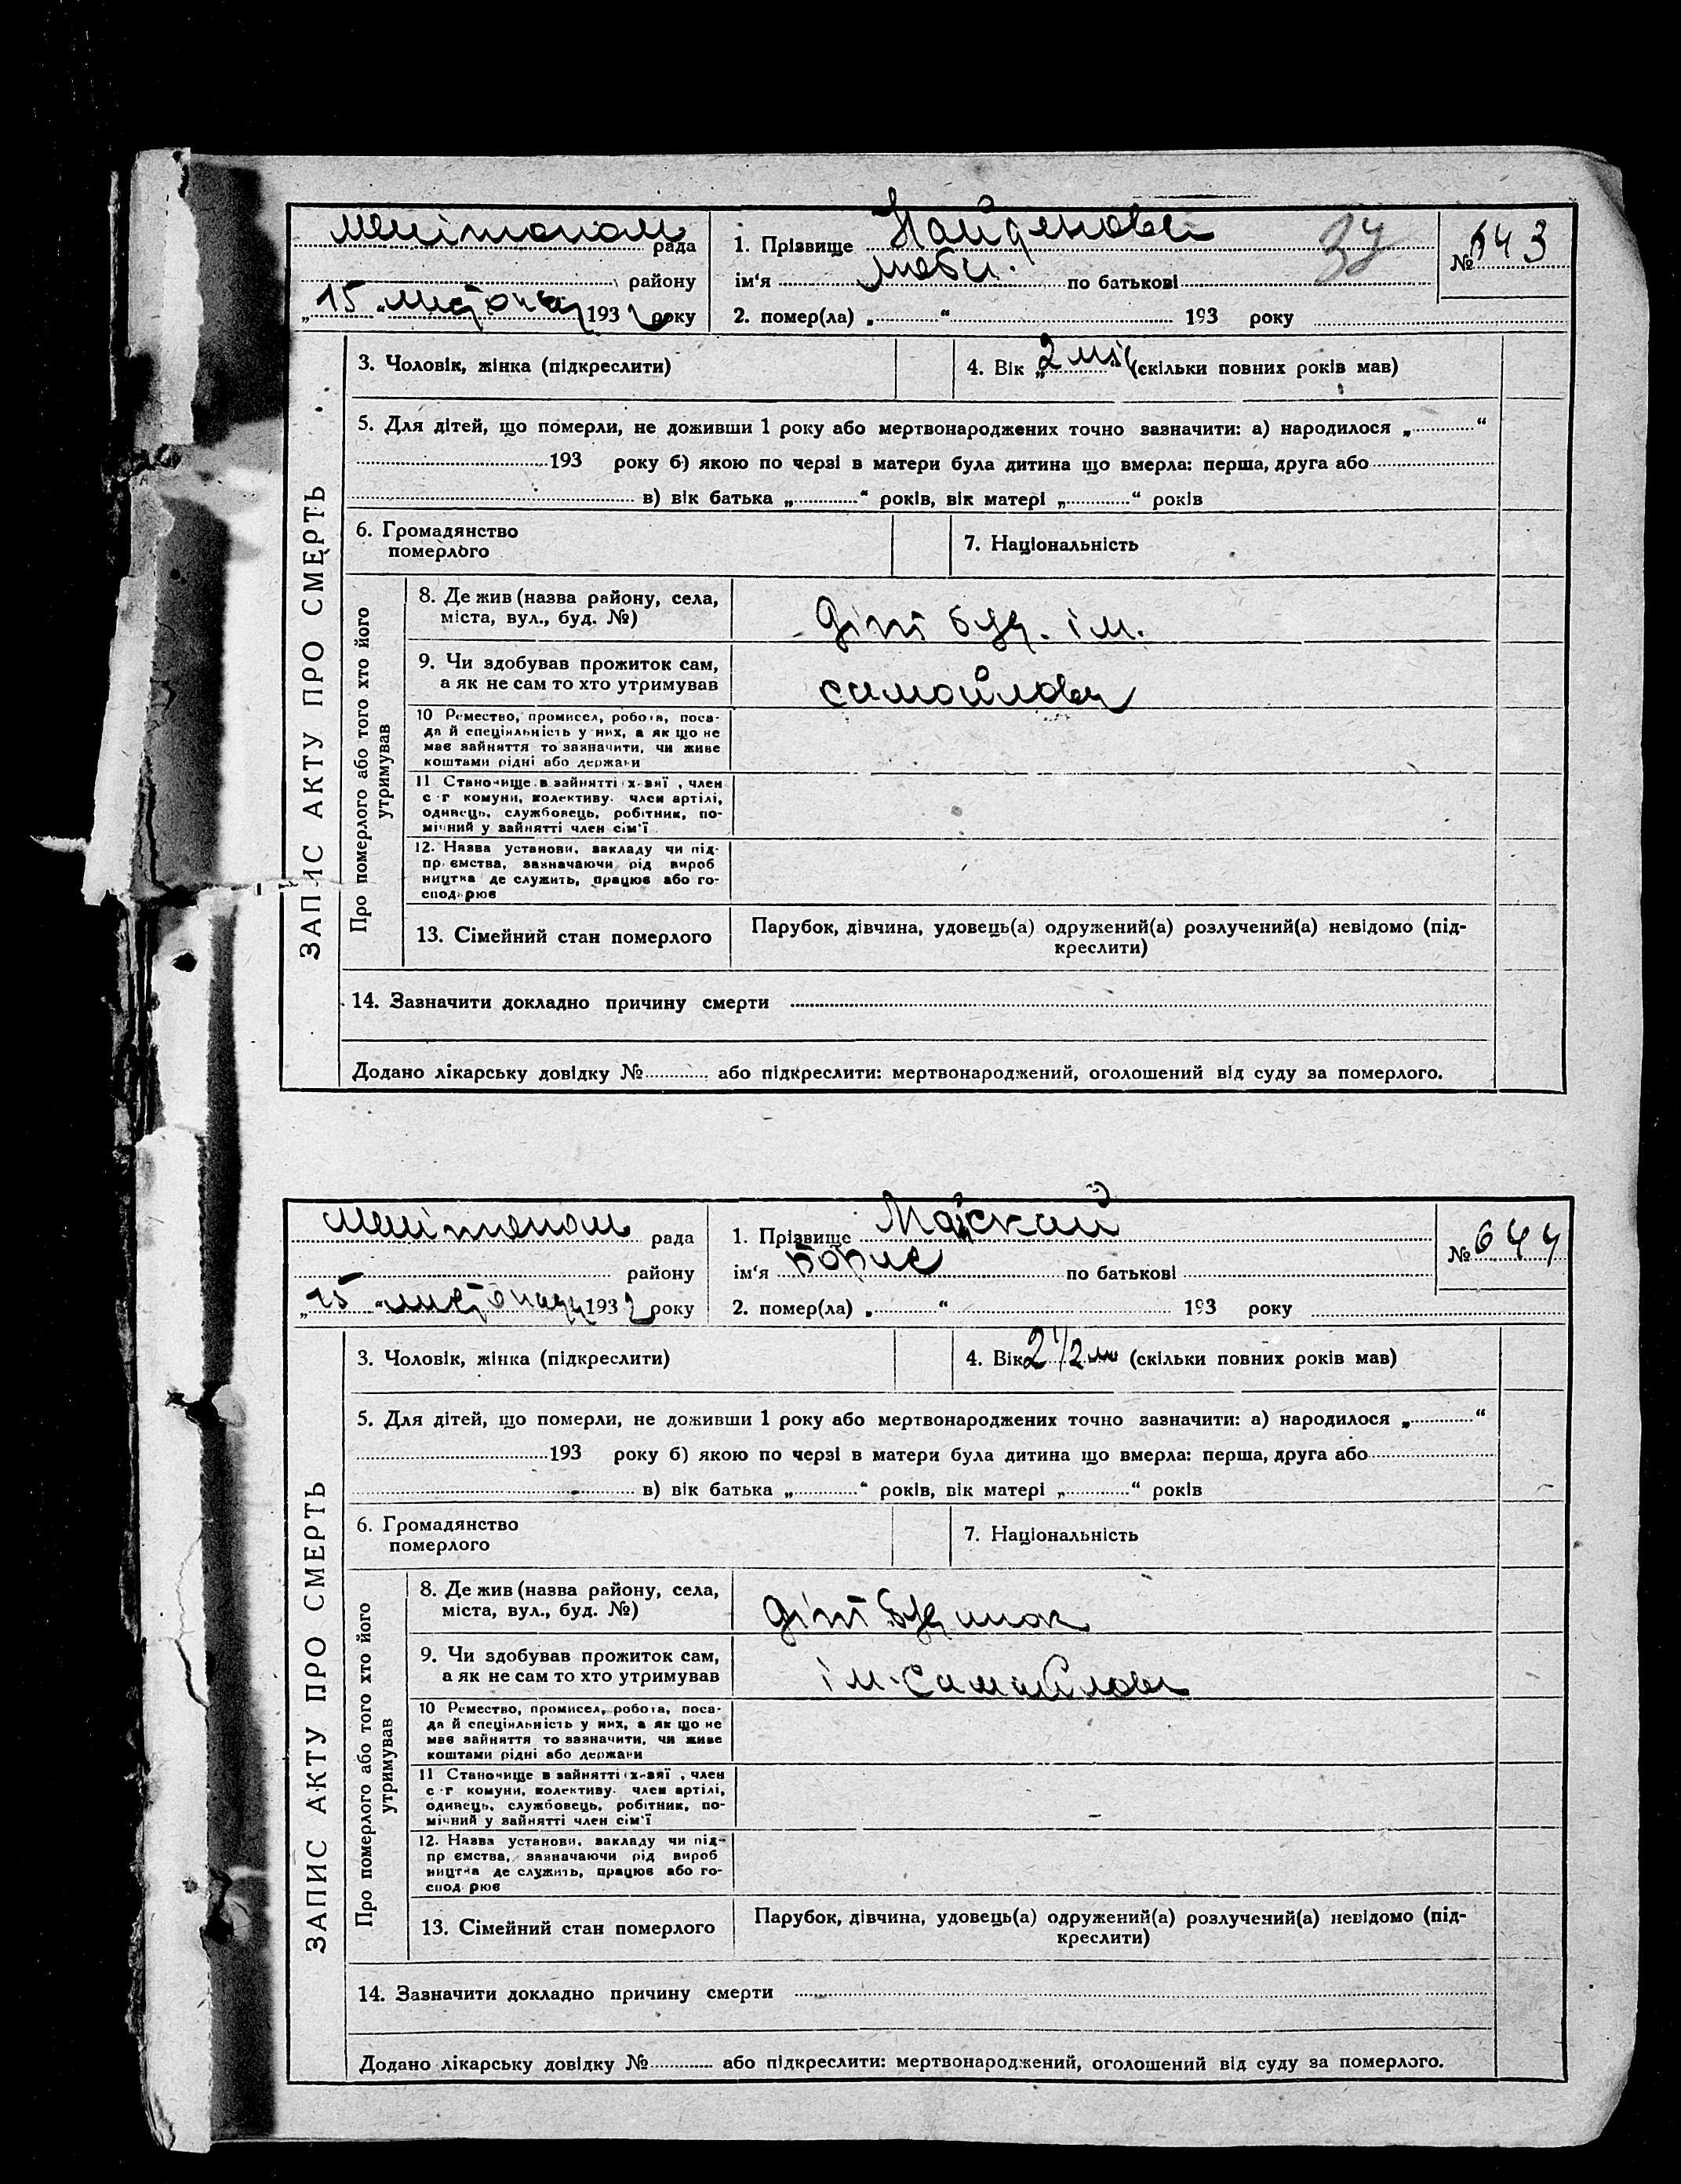 Мелітополь рада
району
„15“ листопада 1932 року
1. Прізвище Найденова 37
ім'я Люба. по батькові
2. помер(ла) „ “ 193 року
№ 643
ЗАПИС АКТУ ПРО СМЕРТЬ
3. Чоловік, жінка (підкреслити)
4. Вік „2 міс (скільки повних років мав)
5. Для дітей, що померли, не доживши 1 року або мертвонароджених точно зазначити: а) народилося „ “
193 року б) якою по черзі в матери була дитина що вмерла: перша, друга або
в) вік батька „ “ років, вік матері „ “ років
6. Громадянство
померлого
7. Національність
Про померлого або того хто його
утримував
8. Де жив (назва району, села,
міста, вул., буд. №)
Діт буд. ім.
9. Чи здобував прожиток сам,
а як не сам то хто утримував
Самойлова
10 Ремество, промисел, робота, поса-
да й спеціяльність у них, а як що не
має зайняття то зазначити, чи живе
коштами рідні або держави
11 Становище в зайнятті х-вяї , член
с г комуни, колективу. член артілі,
одинець, службовець, робітник, по-
мічний у зайнятті член сім'ї
12. Назва установи, закладу чи під-
пр ємства, зазначаючи рід вироб
ництва де служить, працює або го-
спод рює
13. Сімейний стан померлого
Парубок, дівчина, удовець(а) одружений(а) розлучений(а) невідомо (під-
креслити)
14. Зазначити докладно причину смерти
Додано лікарську довідку № або підкреслити: мертвонароджений, оголошений від суду за померлого.
Мелітополь рада
району
„15“ листопада 1932 року
1. Прізвище Майский
ім'я Борис по батькові
2. помер(ла) „ “ 193 року
№ 644
ЗАПИС АКТУ ПРО СМЕРТЬ
3. Чоловік, жінка (підкреслити)
4. Вік 2 1/2 м (скільки повних років мав)
5. Для дітей, що померли, не доживши 1 року або мертвонароджених точно зазначити: а) народилося „ “
193 року б) якою по черзі в матери була дитина що вмерла: перша, друга або
в) вік батька „ “ років, вік матері „ “ років
6. Громадянство
померлого
7. Національність
Про померлого або того хто його
утримував
8. Де жив (назва району, села,
міста, вул., буд. №)
Діт будинок
9. Чи здобував прожиток сам,
а як не сам то хто утримував
ім. Самойлова
10 Ремество, промисел, робота, поса-
да й спеціяльність у них, а як що не
має зайняття то зазначити, чи живе
коштами рідні або держави
11 Становище в зайнятті х-вяї , член
с г комуни, колективу. член артілі,
одинець, службовець, робітник, по-
мічний у зайнятті член сім'ї
12. Назва установи, закладу чи під-
пр ємства, зазначаючи рід вироб
ництва де служить, працює або го-
спод рює
13. Сімейний стан померлого
Парубок, дівчина, удовець(а) одружений(а) розлучений(а) невідомо (під-
креслити)
14. Зазначити докладно причину смерти
Додано лікарську довідку № або підкреслити: мертвонароджений, оголошений від суду за померлого.